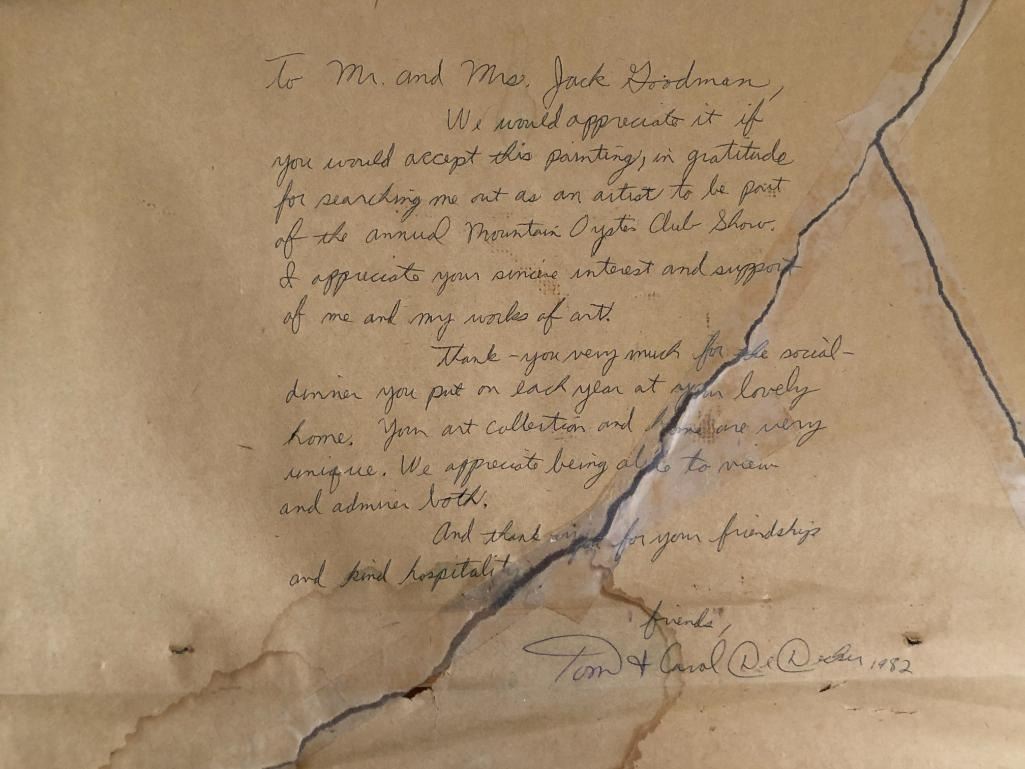 To Mr. and Mrs. Jack Goodman,
We would appreciate it if
you would accept this painting, in gratitude
for searching me out as an artist to be part
of the annual Mountain Oyster Club Show.
I appreciate your sincere interest and support
of me and my works of art.
Thank-you very much for the social-
dinner you put on each year at your lovely
home. Your art collection and home are very
unique. We appreciate being able to view
and admire both.
And thank you for your friendship
and kind hospitality
friends,
Tom & Carol DeDecker 1982